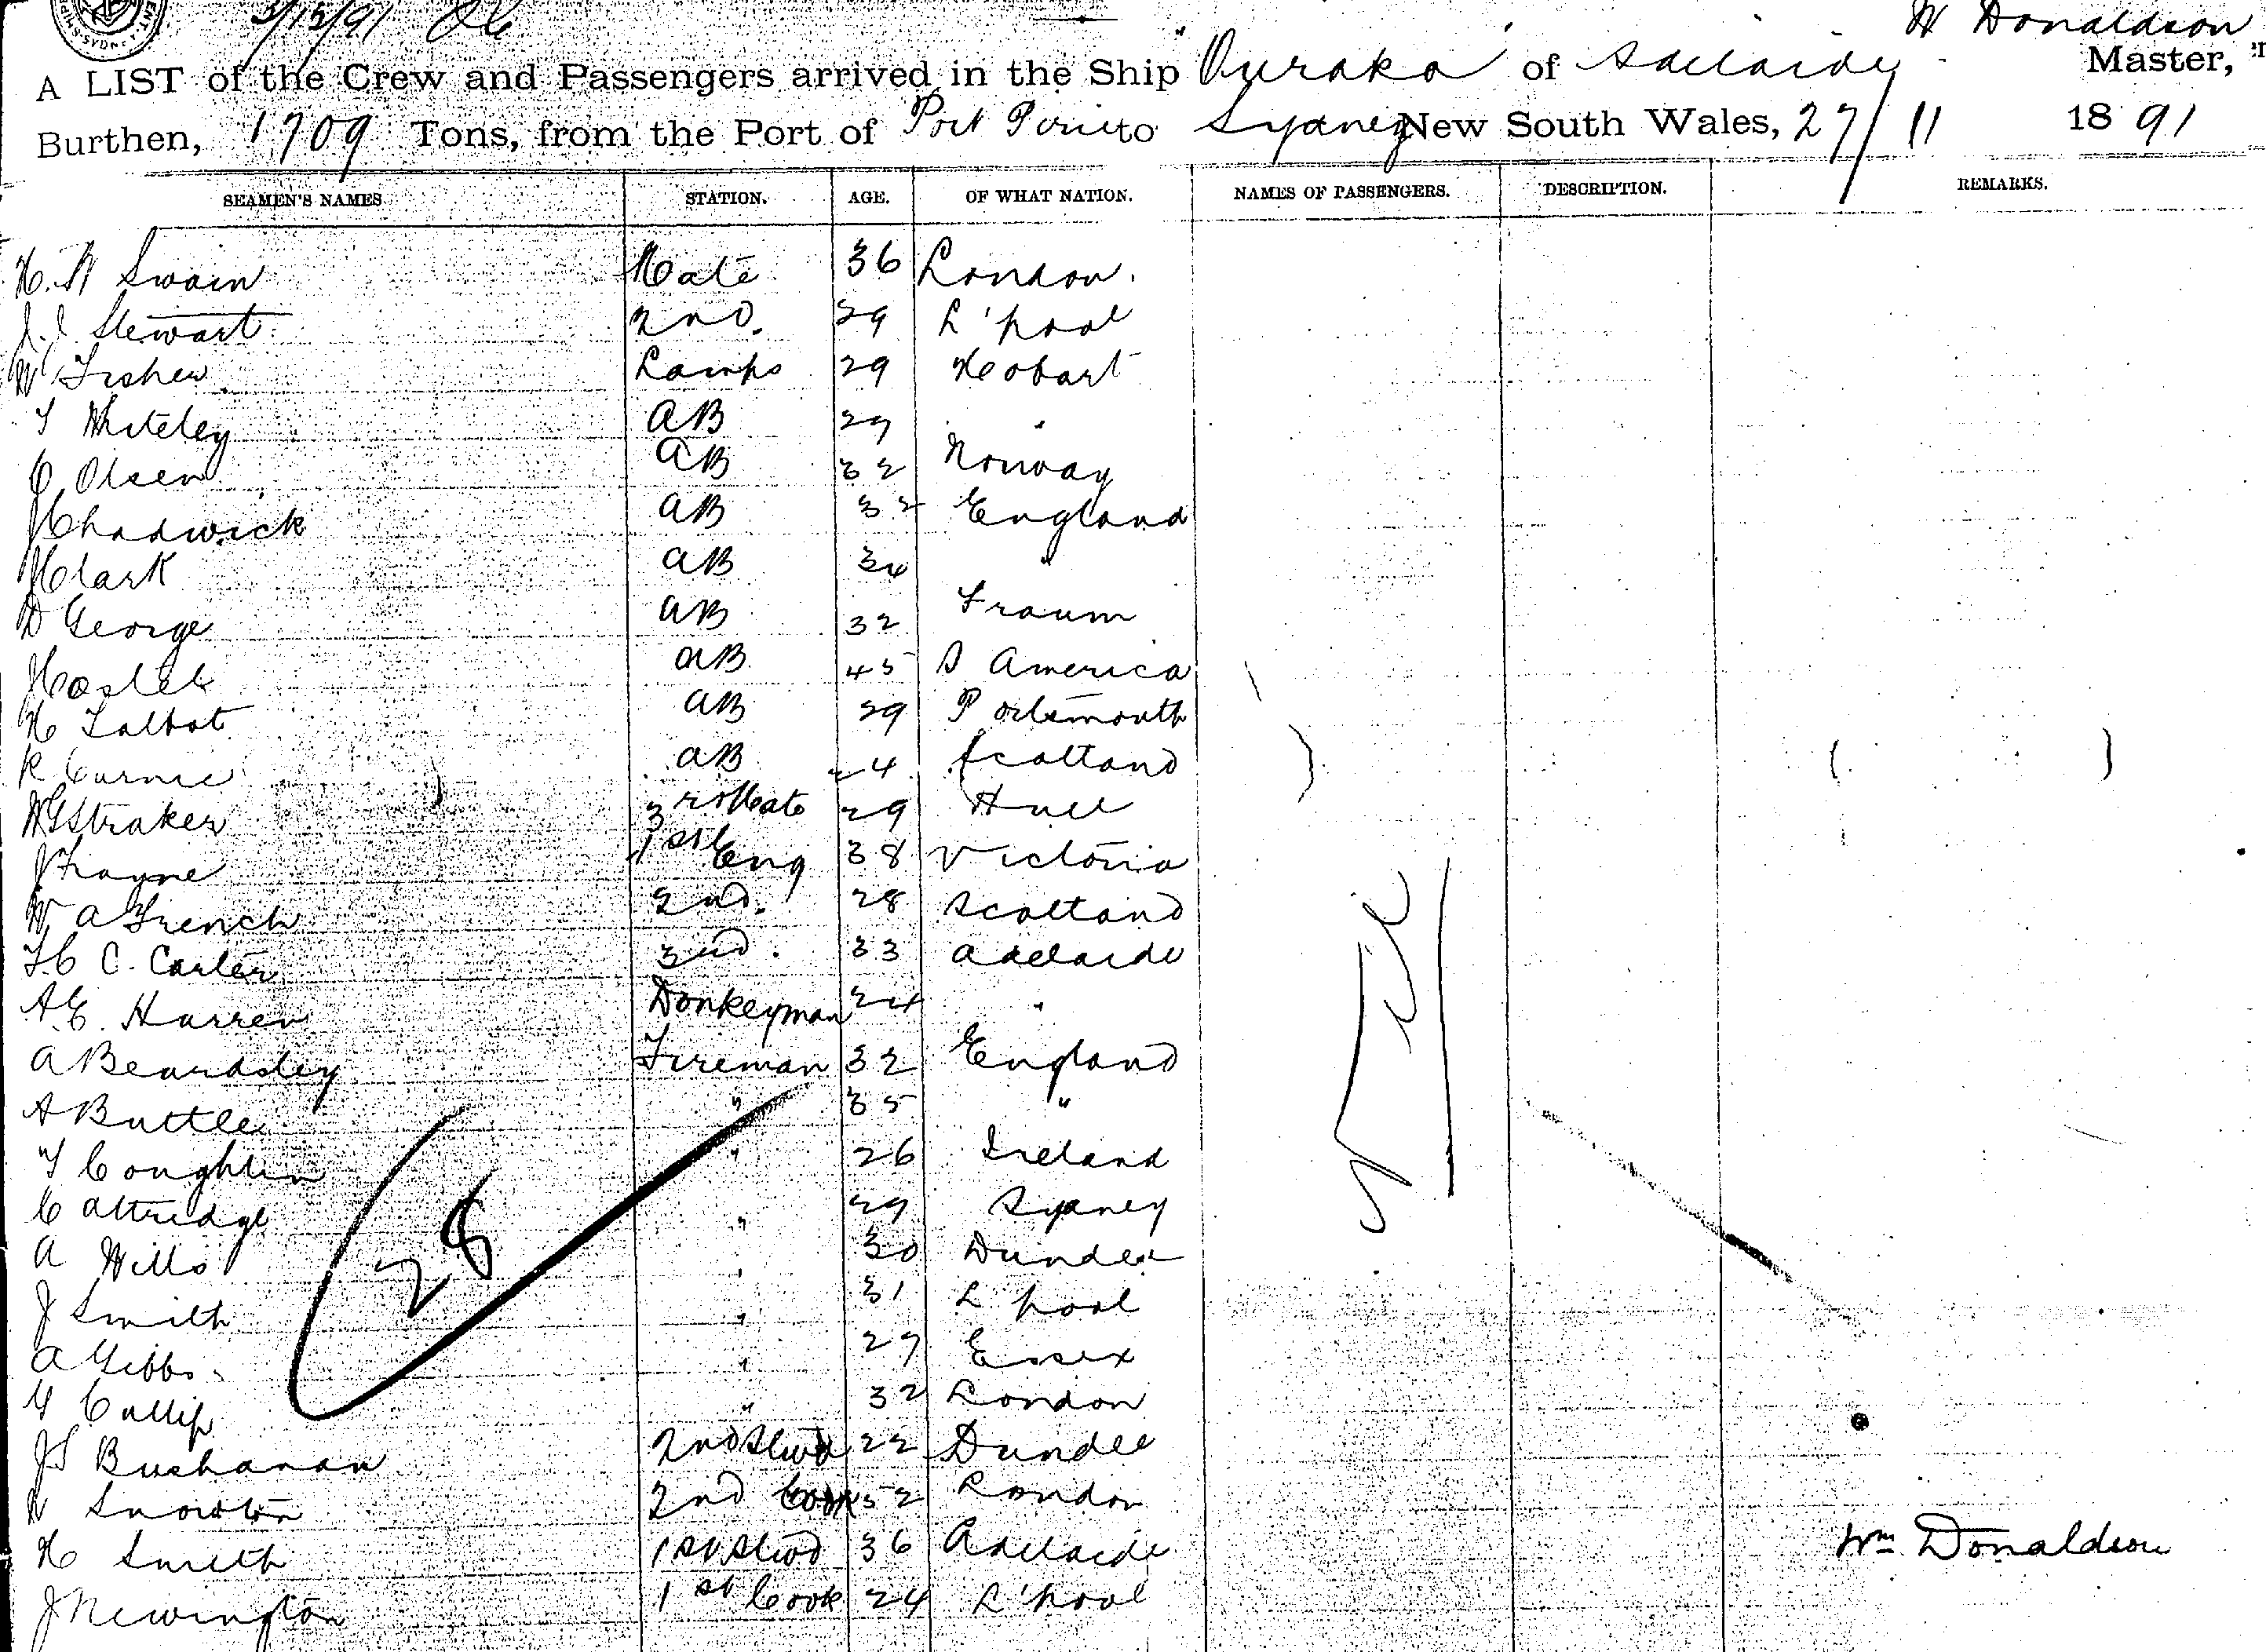 3/12/91
W Donaldson
A LIST of the Crew and Passengers arrived in the Ship "Ouraka" of Adelaide Master,
Burthen, 1709 Tons, from the Port of Port Pirie to Sydney New South Wales, 27/11 1891
SEAMEN'S NAMES STATION. AGE. OF WHAT NATION. NAMES OF PASSENGERS. DESCRIPTION. REMARKS.
H. W Swain Mate 36 London.
J. J Stewart 2nd. 29 L'pool
W Fisher Lamps 29 Hobart
T Whiteley AB 29 "
O Olsen AB 32 Norway
J Chadwick AB 32 England
J Clark AB 34 "
D George AB 32
AB 45 S America
H Talbot AB 29 Portsmouth
R Currie AB 24 Scotland
W G Straker 3rd Mate 29 Hull
J Frayne 1st Eng 38 Victoria
W A French 2nd. 28 Scotland
C. Carter 3rd. 33 Adelaide
A E. Warren Donkeyman 24 "
A Beardsley Fireman 32 England
A Buttle " 35 "
T Coughlin " 26 Ireland
C Attridge " 29 Sydney
A Wills " 30 Dundee
J Smith " 31 L'pool
A Gibbs " 27 Essex
G Cullip " 32 London
J S Buchanan 2nd Stwd 22 Dundee
Snowton 2nd Cook 52 London
H Smith 1st Stwd 36 Adelaide
J Newington 1st Cook 24 L'pool
28
Nil
Wm Donaldson